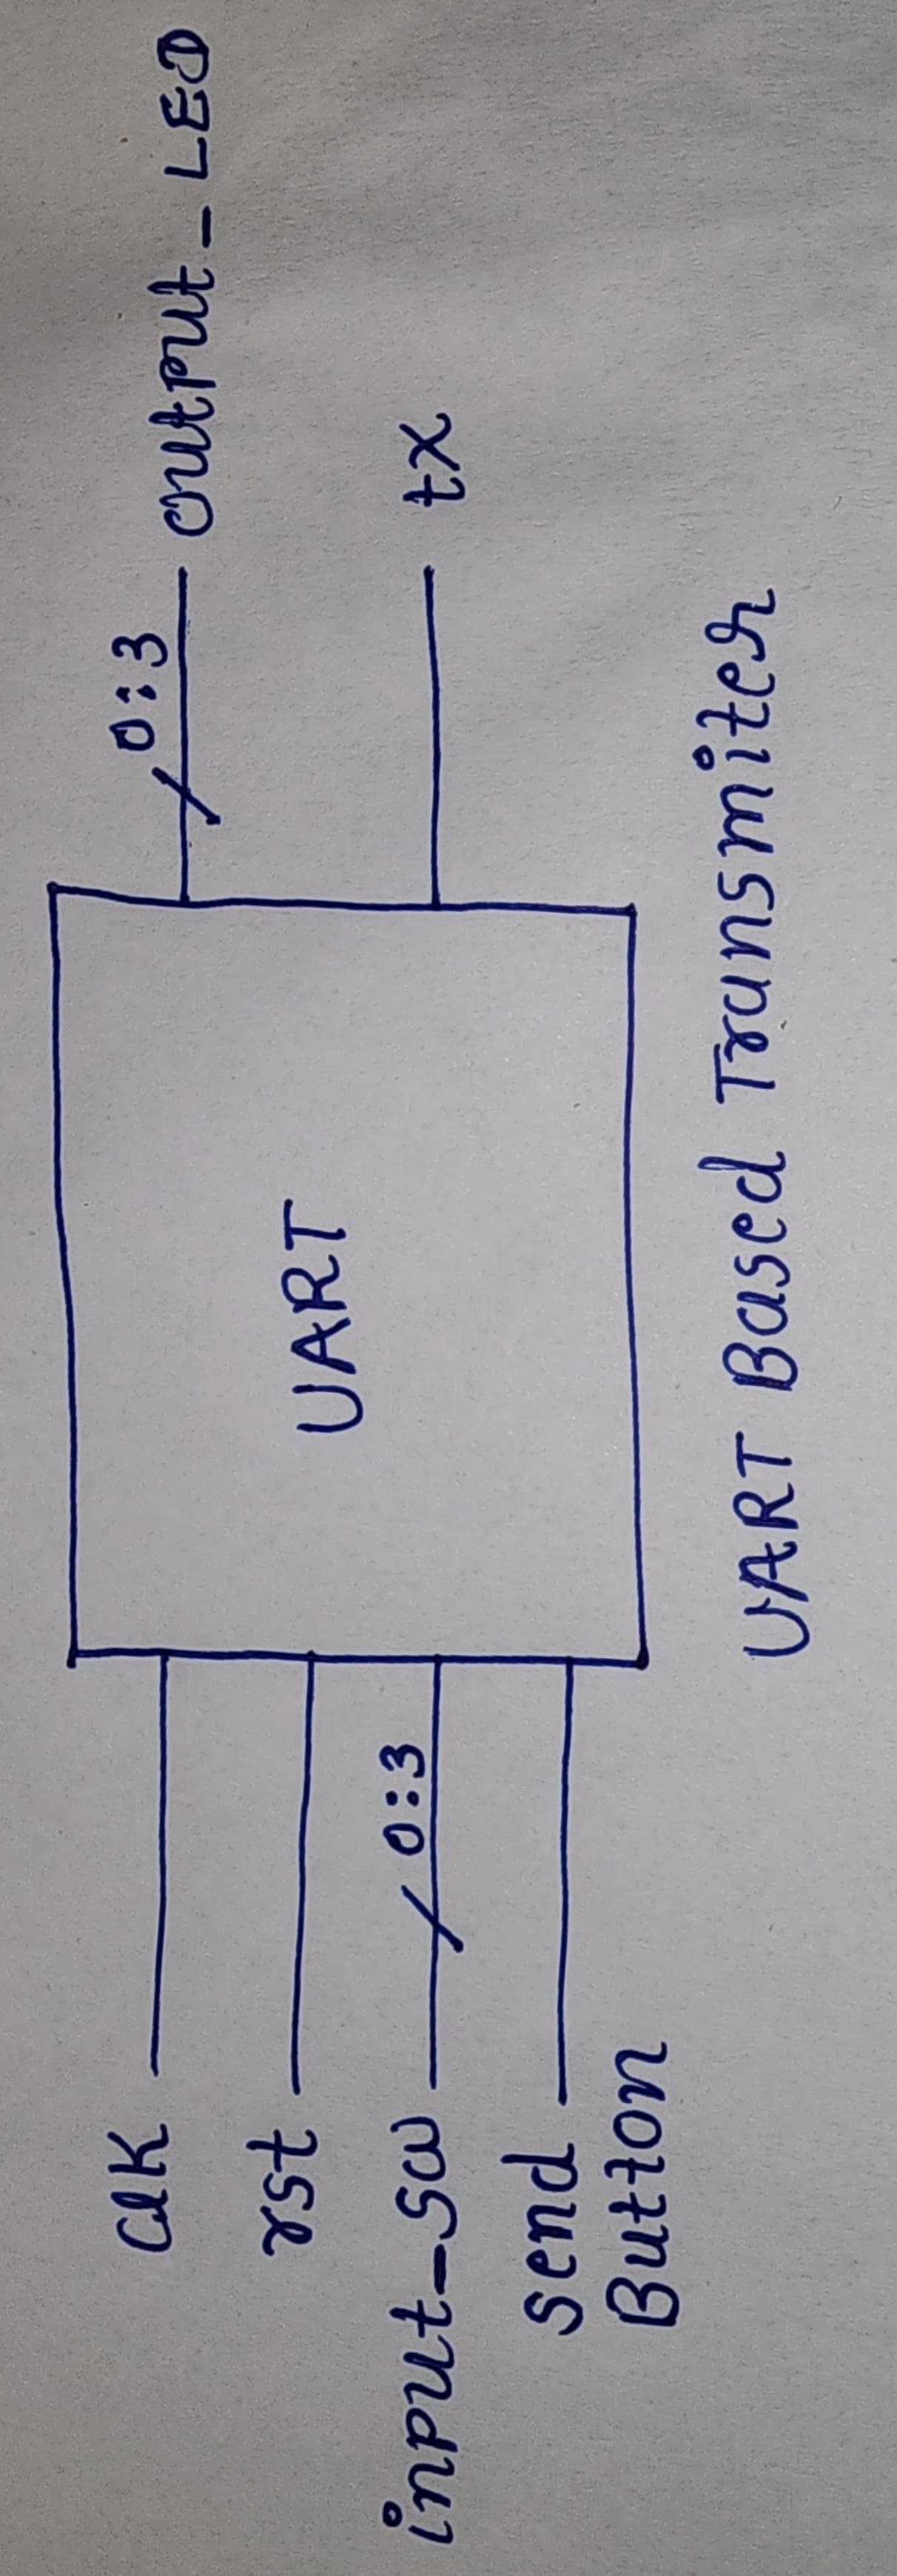 clk
rst
input_sw
0:3
send
Button
UART
0:3
output_LED
tx
UART Based Transmiter